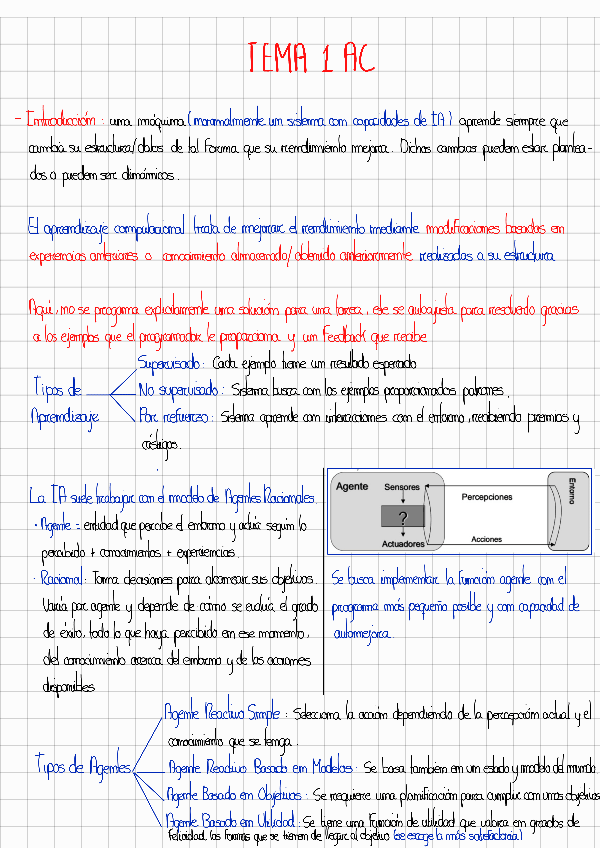 TEMA 1 AC
- Introducción: una máquina (normalmente un sistema con capacidades de IA) aprende siempre que
cambia su estructura/datos de tal forma que su rendimiento mejora. Dichos cambios pueden estar plantea-
dos o pueden ser dinámicos.
El aprendizaje computacional trata de mejorar el rendimiento mediante modificaciones basadas en
experiencias anteriores o conocimiento almacenado/obtenido anteriormente realizadas a su estructura
Aquí, no se programa explícitamente una solución para una tarea, este se autoajusta para resolverlo gracias
a los ejemplos que el programador le proporciona y un Feedback que recibe
Tipos de Aprendizaje
Supervisado: Cada ejemplo tiene un resultado esperado
No supervisado: Sistema busca con los ejemplos proporcionados patrones.
Por refuerzo: Sistema aprende con interacciones con el entorno, recibiendo premios y
castigos.
La IA suele trabajar con el modelo de Agentes Racionales.
· Agente = entidad que percibe el entorno y actúa según lo
percibido + conocimientos + experiencias.
· Racional: Toma decisiones para alcanzar sus objetivos.
Varía por agente y depende de cómo se evalúa el grado
de éxito, todo lo que haya percibido en ese momento,
del conocimiento acerca del entorno y de las acciones
disponibles
Agente
Sensores
?
Actuadores
Percepciones
Acciones
Entorno
Se busca implementar la función agente con el
programa más pequeño posible y con capacidad de
automejora.
Tipos de Agentes
Agente Reactivo Simple: Selecciona la acción dependiendo de la percepción actual y el
conocimiento que se tenga.
Agente Reactivo Basado en Modelos: Se basa también en un estado y modelo del mundo.
Agente Basado en Objetivos: Se requiere una planificación para cumplir con unos objetivos
Agente Basado en Utilidad: Se tiene una función de utilidad que valora en grados de
felicidad las formas que se tienen de llegar al objetivo (se escoge la más satisfactoria)